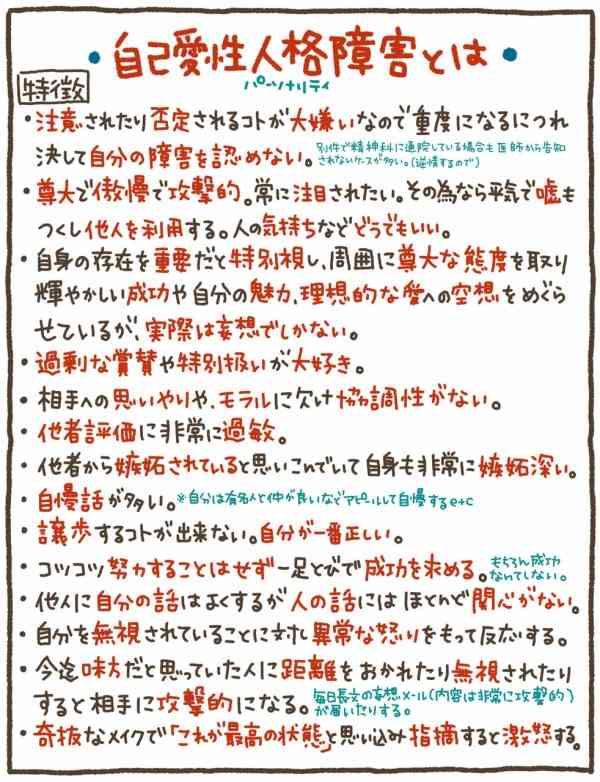 ・自己愛性人格障害とは・
パーソナリティ
特徴
・注意されたり否定されるコトが大嫌いなので重度になるにつれ
決して自分の障害を認めない。別件で精神科に通院している場合も医師から告知
されないケースが多い。(逆情するので)
・尊大で傲慢で攻撃的。常に注目されたい。その為なら平気で嘘も
つくし他人を利用する。人の気持ちなどどうでもいい。
・自身の存在を重要だと特別視し、周囲に尊大な態度を取り
輝やかしい成功や自分の魅力、理想的な愛への空想をめぐら
せているが、実際は妄想でしかない。
・過剰な賞賛や特別扱いが大好き。
・相手への思いやりや、モラルに欠け協調性がない。
・他者評価に非常に過敏。
・他者から嫉妬されていると思いこんでいて自身も非常に嫉妬深い。
・自慢話が多い。※自分は有名人と仲が良いなどアピールして自慢するetc
・譲歩するコトが出来ない。自分が一番正しい。
・コツコツ努力することはせず一足とびで成功を求める。もちろん成功
なんてしない。
・他人に自分の話はよくするが人の話にはほとんど関心がない。
・自分を無視されていることに対し異常な怒りをもって反応する。
・今迄味方だと思っていた人に距離をおかれたり無視されたり
すると相手に攻撃的になる。毎日長文の妄想メール(内容は非常に攻撃的)
が届いたりする。
・奇抜なメイクで「これが最高の状態」と思い込み指摘すると激怒する。